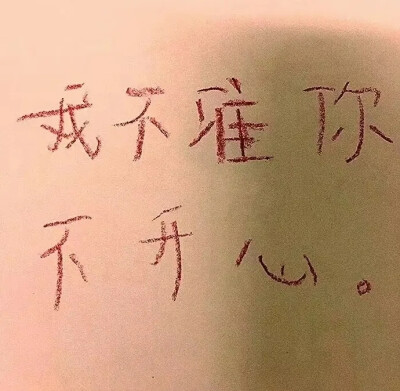 我不难你
不开心。